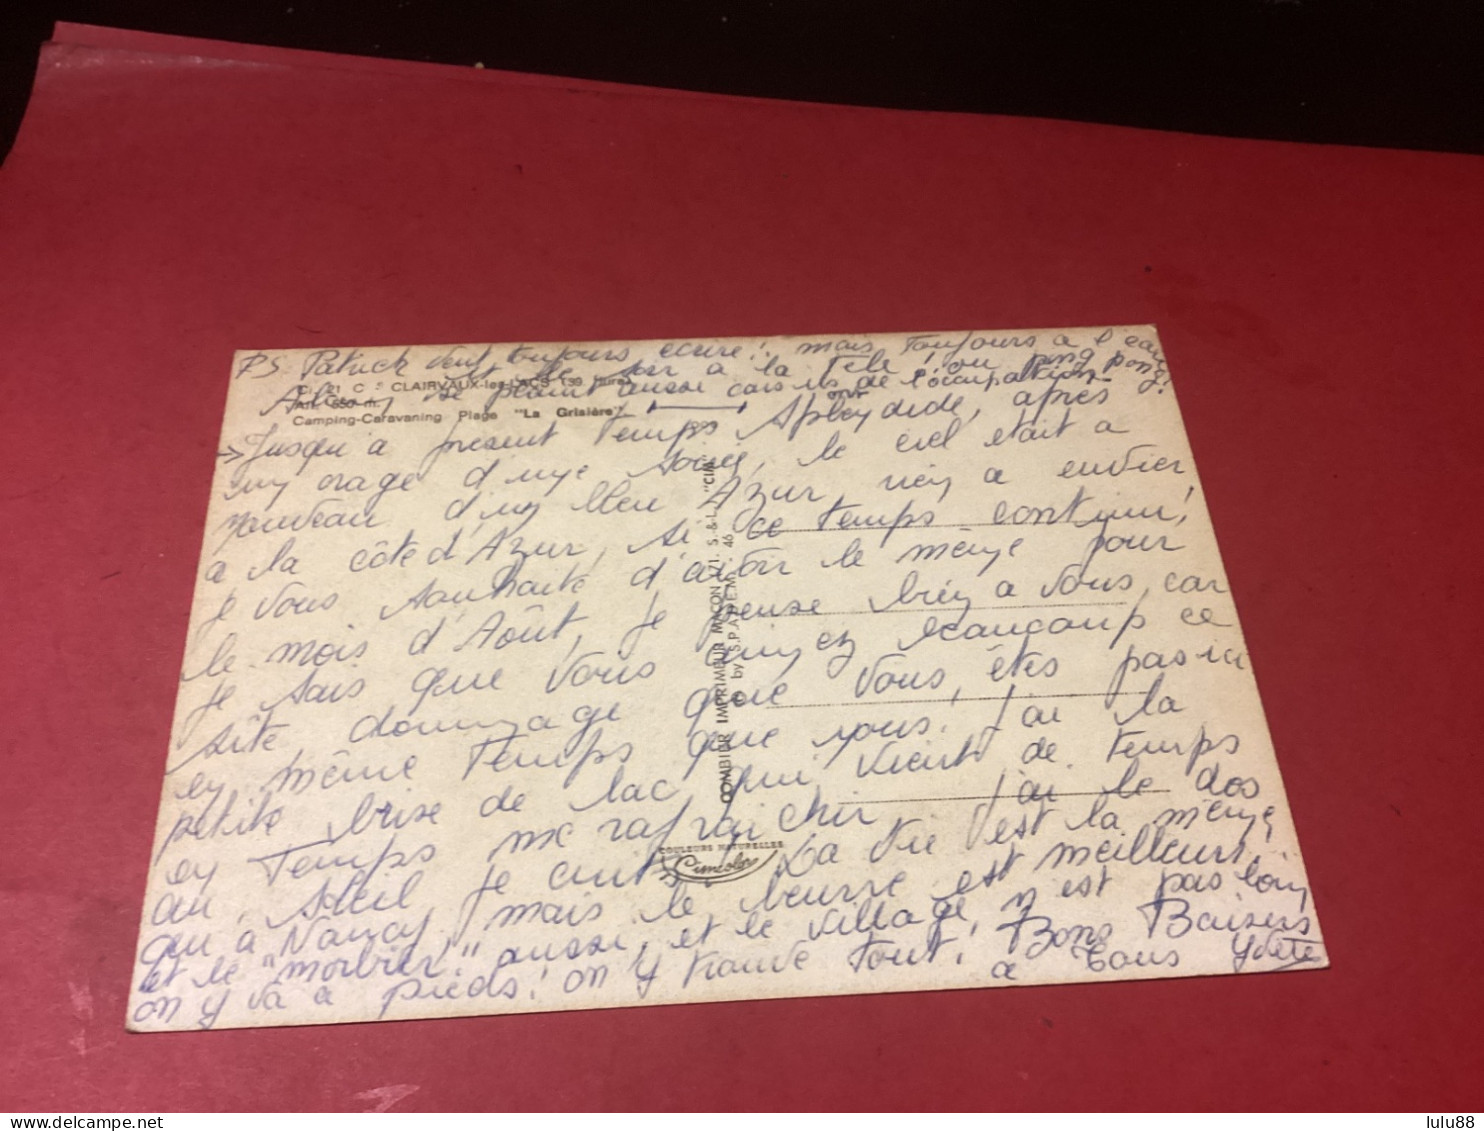 P.S. Patrick veut toujours écrire! mais toujours à l'eau
le soir à la télé! ou ping pong!
Alain, se plaint aussi car ils ont de l'occupation
C. 21 C - CLAIRVAUX-les-LACS (39 Jura)
Alt. 550 m.
Camping-Caravaning Plage "La Grisière"
→ Jusqu'à présent temps splendide, après
un orage d'une soirée, le ciel était à
nouveau d'un bleu Azur, rien à envier
à la côte d'Azur, si ce temps continu,
je vous souhaite d'avoir le même pour
le mois d'Août, je pense bien à vous, car
je sais que vous aimez beaucoup ce
site dommage que vous êtes pas ici
en même temps que nous. J'ai la
petite brise de lac, qui vient de temps
en temps me rafraichir, j'ai le dos
au soleil, je cuits. La vie est la même
qu'à Nancy, mais le beurre est meilleur,
et le "morbier" aussi, et le village, n'est pas loin
on y va à pieds! on y trouve tout! Bons Baisers
à tous Yvette
COMBIER IMPRIMEUR MACON (71. S.-&-L.) "CIM"
by S.P.A.D.E.M. 46
COULEURS NATURELLES
Cimcolor
lulu88